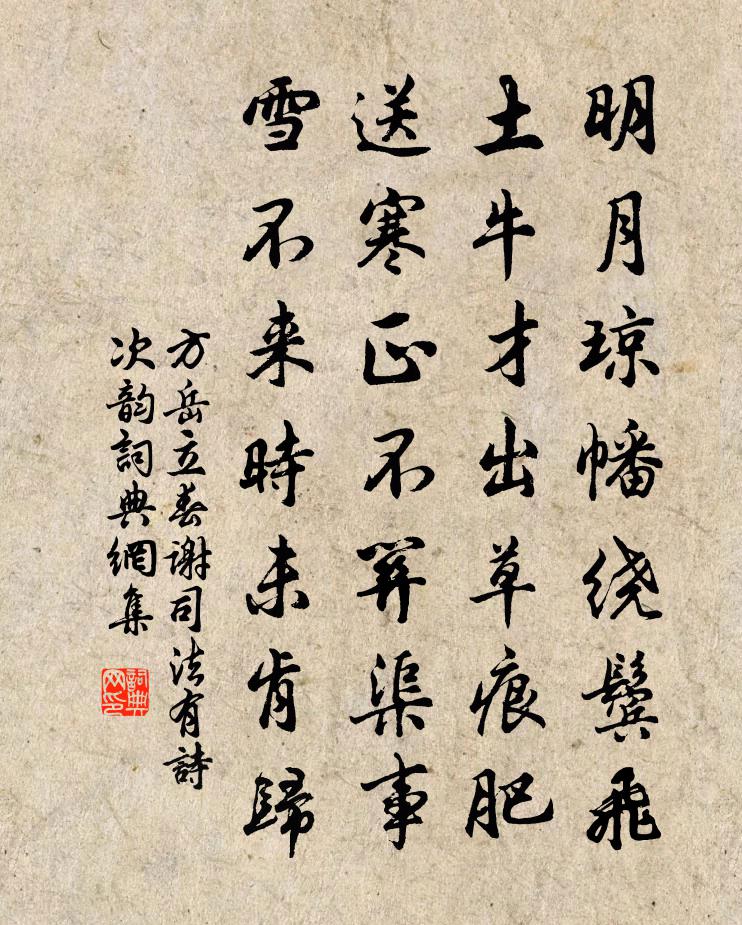 明月琼幡绕鬓飛
土牛才出草痕肥
送寒正不關渠事
雪不来時未肯歸
方岳立春谢司法有詩
次韵詞典網集
詞典
网印